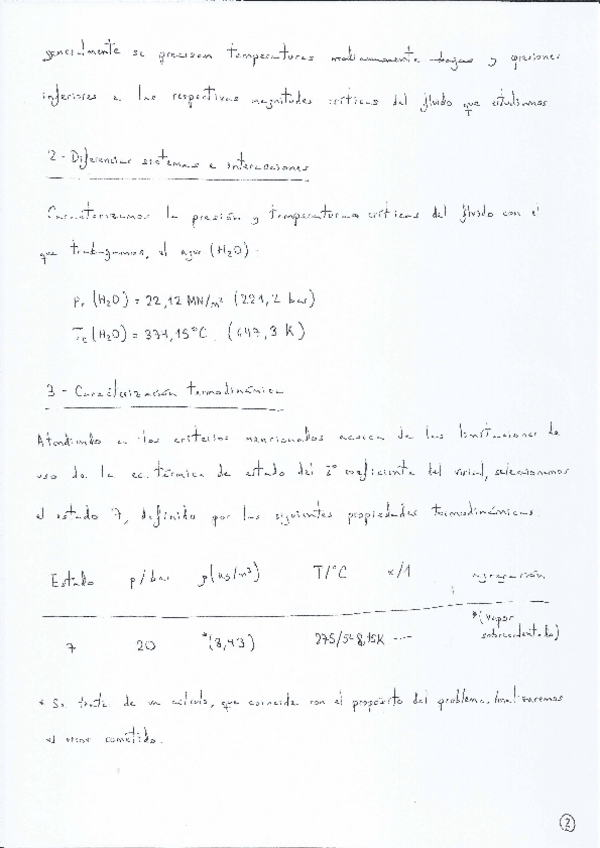 generalmente se precisan temperaturas medianamente bajas y presiones
inferiores a las respectivas magnitudes críticas del fluido que estudiamos
2 - Diferenciar sistemas e interacciones
Caracterizamos la presión y temperaturas críticas del fluido con el
que trabajamos, el agua (H₂O).
Pc (H₂O) = 22,12 MN/m² (221,2 bar)
Tc (H₂O) = 374,15°C (647,3 K)
3 - Caracterización termodinámica
Atendiendo a los criterios mencionados acerca de las limitaciones de
uso de la ec. térmica de estado del 2º coeficiente del virial, seleccionamos
el estado 7, definido por las siguientes propiedades termodinámicas.
Estado p/bar ρ(kg/m³) T/°C x/1 agregación
7 20 *(8,43) 275/548,15K ---- *(Vapor
sobrecalentado)
* Se trata de un cálculo, que coincide con el propósito del problema. Analizaremos
el error cometido.
2